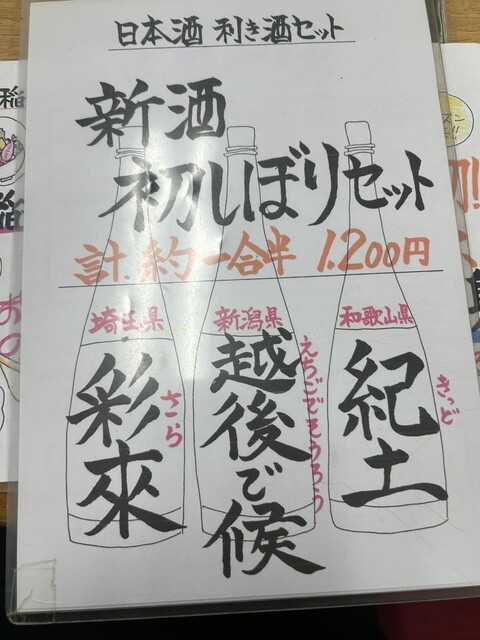 日本酒 利き酒セット
新酒
初しぼりセット
計.約一合半 1.200円
埼玉県
彩來
さら
新潟県
越後で候
えちごでそうろう
和歌山県
紀土
きっど